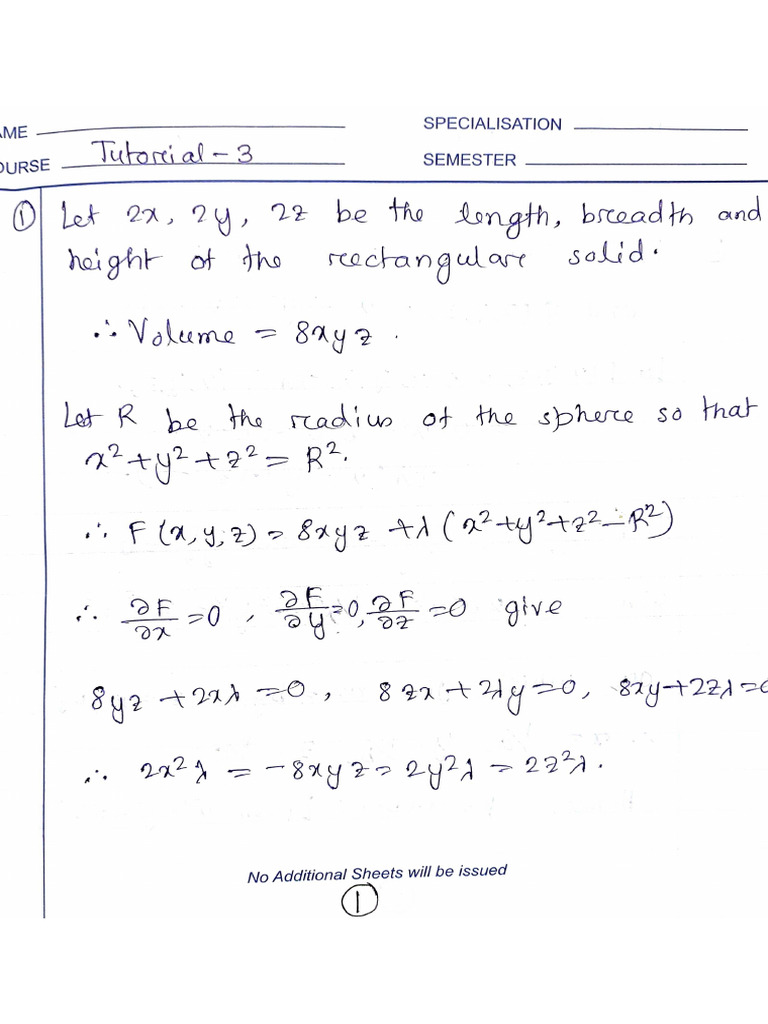 AME
SPECIALISATION
OURSE Tutorial - 3
SEMESTER
① Let 2x, 2y, 2z be the length, breadth and
height of the rectangular solid.
∴ Volume = 8xyz.
Let R be the radius of the sphere so that
x² + y² + z² = R².
∴ F(x, y, z) = 8xyz + λ(x² + y² + z² - R²)
∴ ∂F/∂x = 0, ∂F/∂y = 0, ∂F/∂z = 0 give
8yz + 2xλ = 0, 8zx + 2λy = 0, 8xy + 2zλ = 0
∴ 2x²λ = -8xyz = 2y²λ = 2z²λ.
No Additional Sheets will be issued
①